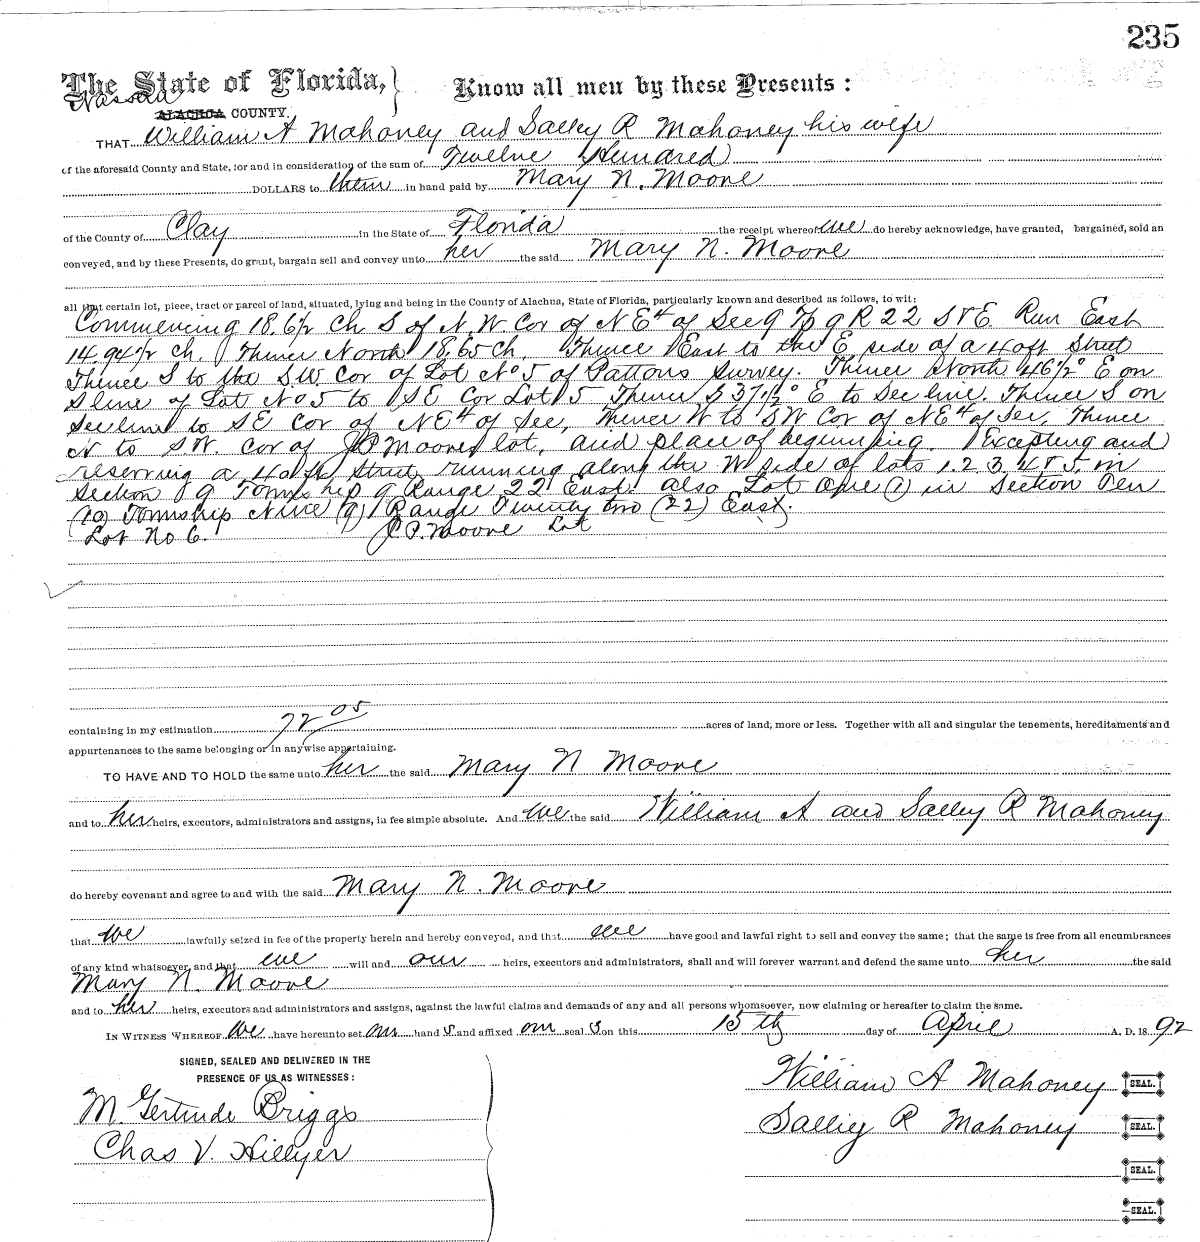 235
The State of Florida, } Know all men by these Presents:
Nassau
ALACHUA COUNTY.
THAT William A Mahoney and Salley R Mahoney his wife
of the aforesaid County and State, for and in consideration of the sum of Twelve Hundred
DOLLARS to them in hand paid by Mary N. Moore
of the County of Clay in the State of Florida the receipt whereof we do hereby acknowledge, have granted, bargained, sold an
conveyed, and by these Presents, do grant, bargain sell and convey unto her the said Mary N. Moore
all that certain lot, piece, tract or parcel of land, situated, lying and being in the County of Alachua, State of Florida, particularly known and described as follows, to wit:
Commencing 18.6½ Ch S of N.W Cor of NE4 of Sec 9 Tp 9 R 22 S & E Run East
14.94½ Ch. Thence North 18.65 Ch. Thence East to the E side of a 40 ft Street
Thence S to the S.W Cor of Lot No 5 of Pattons Survey. Thence North 46½° E on
S line of Lot No 5 to SE Cor Lot 5 Thence S 37½° E to Sec line. Thence S on
Sec line to SE Cor of NE4 of Sec, Thence W to SW Cor of NE4 of Sec, Thence
N to SW. Cor of J P Moores lot, and place of beginning. Excepting and
reserving a 40 ft Street running along the W side of lots 1. 2 3, 4 & 5. in
Section 9 Township 9 Range 22 East. also Lot One (1) in Section Ten
(10) Township Nine (9) Range Twenty two (22) East.
Lot No 6. J P. Moore Lot
containing in my estimation 72 05 acres of land, more or less. Together with all and singular the tenements, hereditaments and
appurtenances to the same belonging or in anywise appertaining.
TO HAVE AND TO HOLD the same unto her the said Mary N Moore
and to her heirs, executors, administrators and assigns, in fee simple absolute. And we the said William A and Salley R Mahoney
do hereby covenant and agree to and with the said Mary N. Moore
that we lawfully seized in fee of the property herein and hereby conveyed, and that we have good and lawful right to sell and convey the same; that the same is free from all encumbrances
of any kind whatsoever, and that we will and our heirs, executors and administrators, shall and will forever warrant and defend the same unto her the said
Mary N. Moore
and to her heirs, executors and administrators and assigns, against the lawful claims and demands of any and all persons whomsoever, now claiming or hereafter to claim the same.
IN WITNESS WHEREOF we have hereunto set our hand s and affixed our seal s on this 15th day of April A. D. 18 92
SIGNED, SEALED AND DELIVERED IN THE
PRESENCE OF US AS WITNESSES:
William A Mahoney SEAL.
M. Gertrude Briggs
Salley R Mahoney SEAL.
Chas V. Hillyer
SEAL.
SEAL.